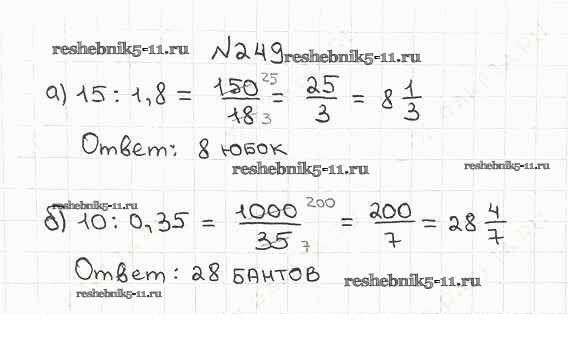 reshebnik5-11.ru №249 reshebnik5-11.ru
а) 15 : 1,8 = 150/18 25/3 = 25/3 = 8 1/3
Ответ: 8 юбок
reshebnik5-11.ru reshebnik5-11.ru
reshebnik5-11.ru
б) 10 : 0,35 = 1000/35 200/7 = 200/7 = 28 4/7
Ответ: 28 бантов reshebnik5-11.ru
reshebnik5-11.ru